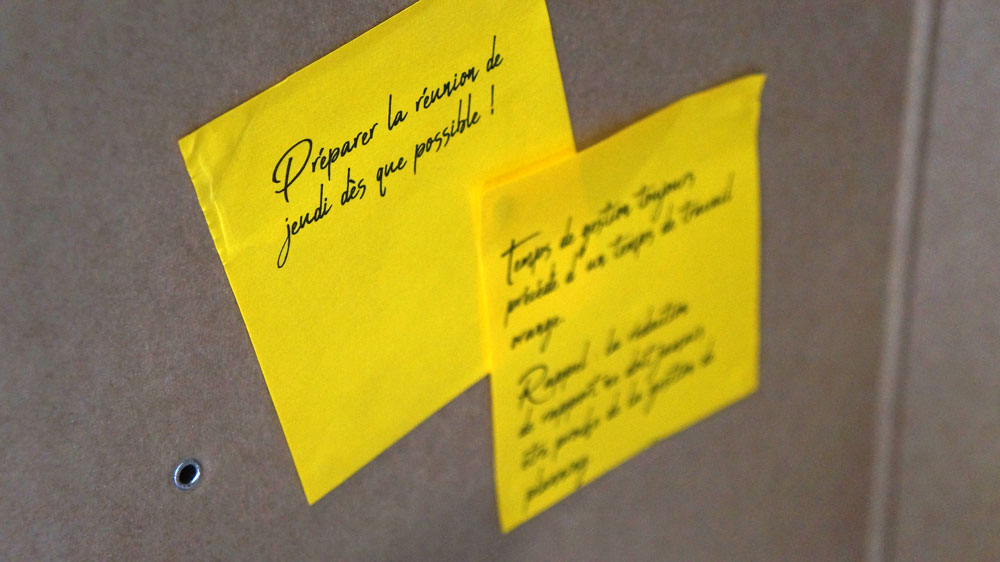 Préparer la réunion de
jeudi dès que possible !
Temps de gestion toujours
précédé d'un temps de travail
orange.
Rappel : la rédaction
de rapport ne doit jamais
être proche de la gestion de
planning